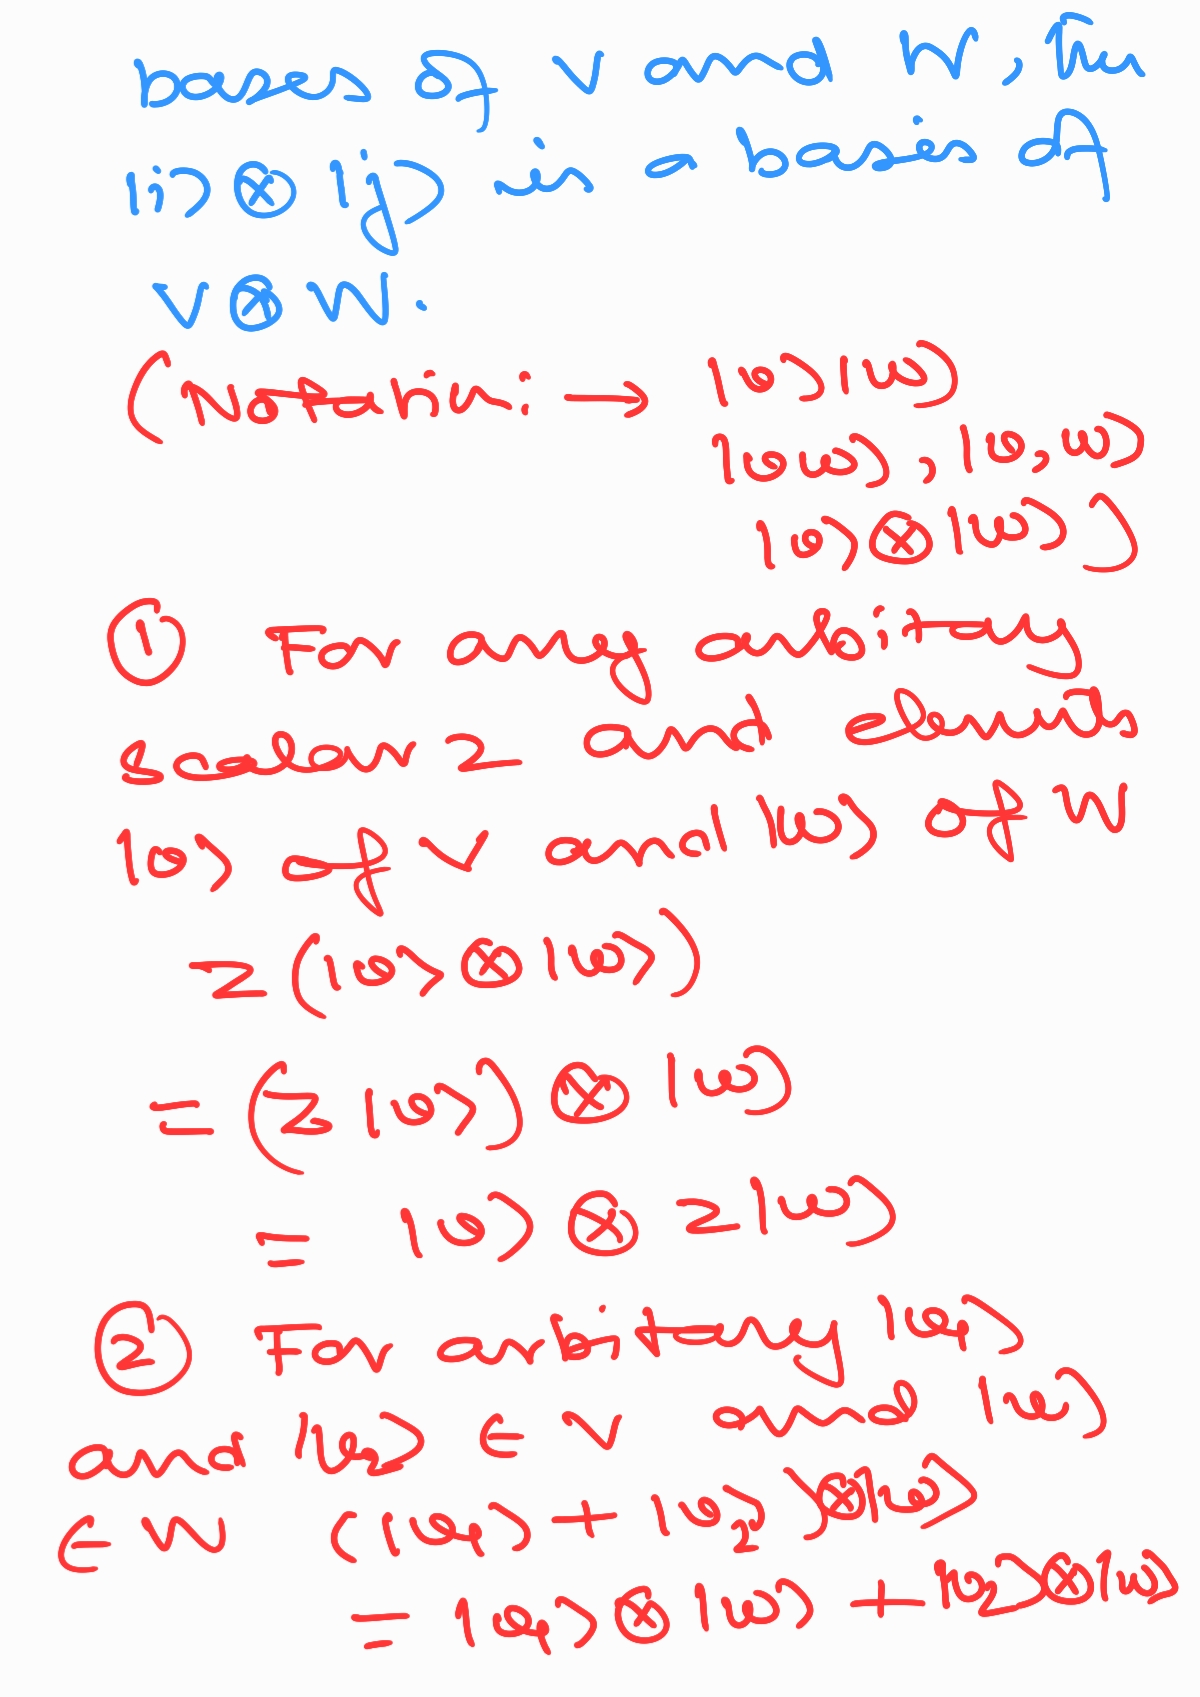 bases of V and W, then
|i⟩ ⊗ |j⟩ is a basis of
V ⊗ W.
(Notation: → |v⟩|w⟩
|vw⟩, |v,w⟩
|v⟩ ⊗ |w⟩)
① For any arbitary
scalar z and elements
|v⟩ of V and |w⟩ of W
z(|v⟩ ⊗ |w⟩)
= (z|v⟩) ⊗ |w⟩
= |v⟩ ⊗ z|w⟩
② For arbitary |v₁⟩
and |v₂⟩ ∈ V and |w⟩
∈ W (|v₁⟩ + |v₂⟩) ⊗ |w⟩
= |v₁⟩ ⊗ |w⟩ + |v₂⟩ ⊗ |w⟩